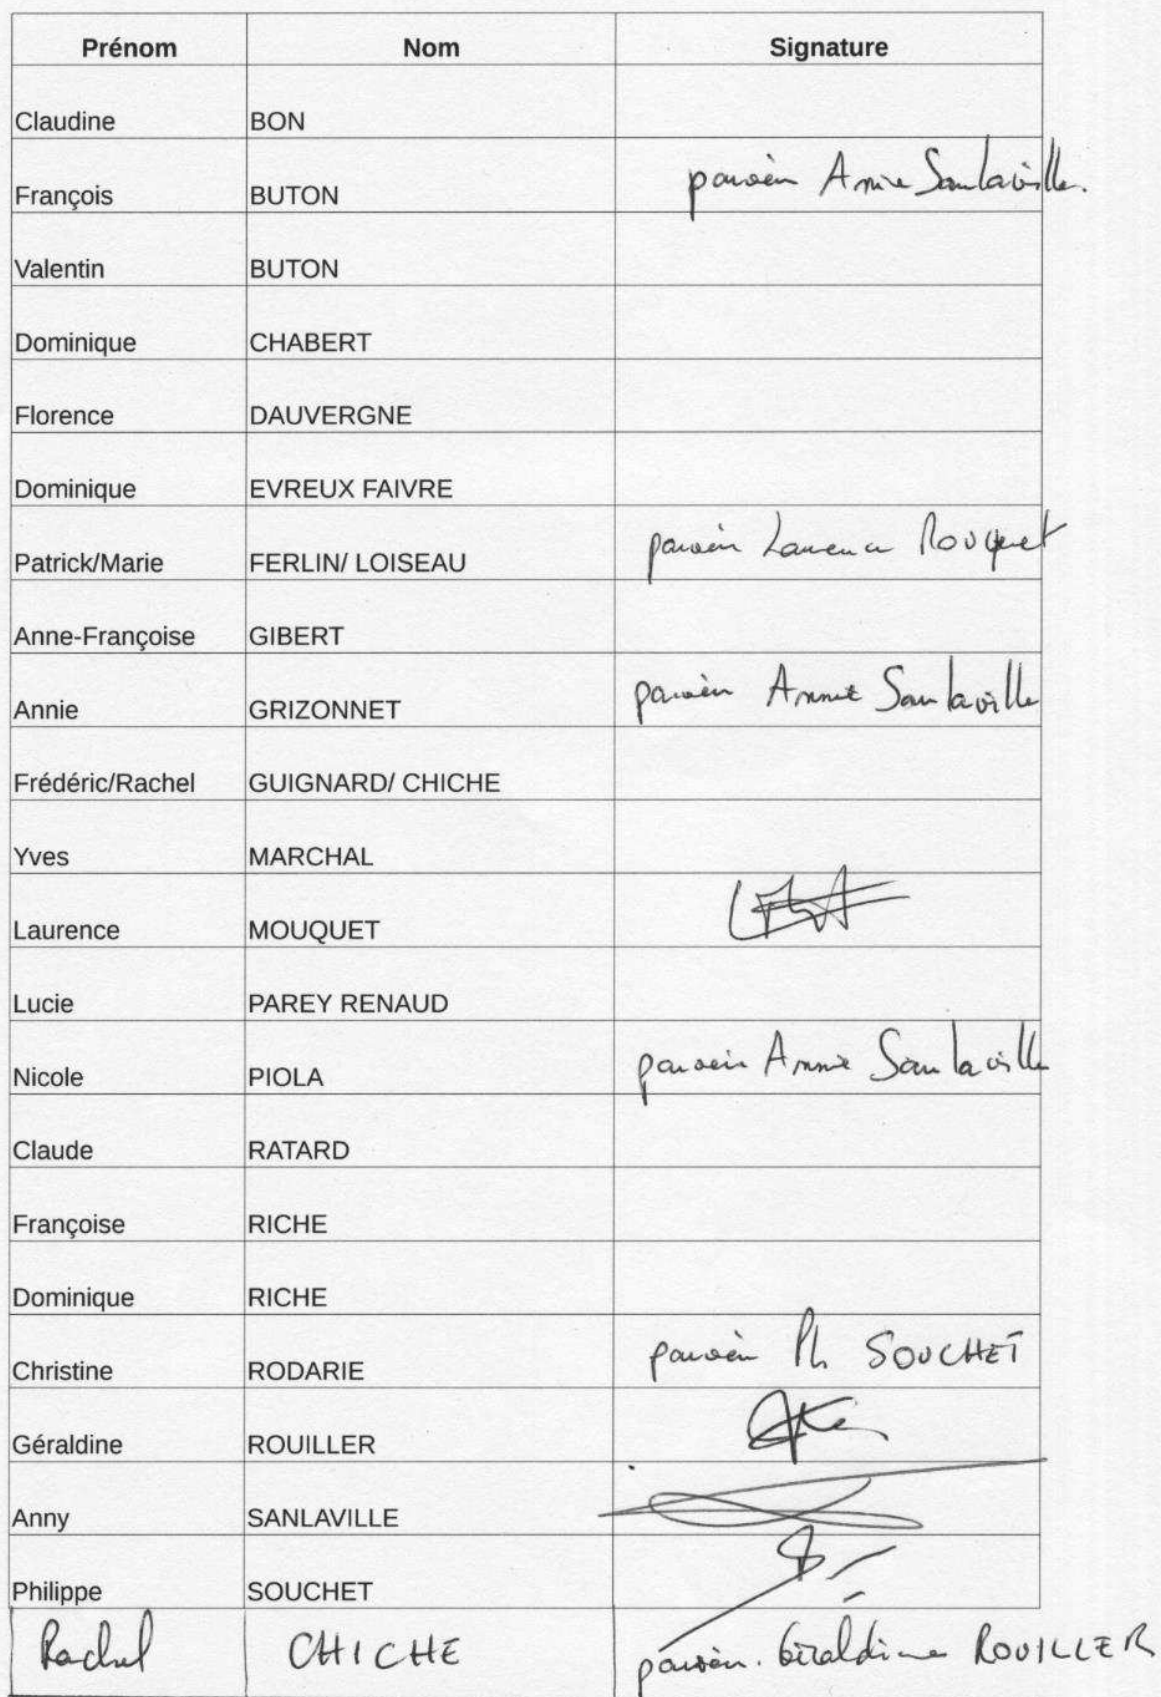 Prénom Nom Signature
Claudine BON
François BUTON pouvoir Annie Sanlaville.
Valentin BUTON
Dominique CHABERT
Florence DAUVERGNE
Dominique EVREUX FAIVRE
Patrick/Marie FERLIN/ LOISEAU pouvoir Laurence Mouquet
Anne-Françoise GIBERT
Annie GRIZONNET pouvoir Annie Sanlaville
Frédéric/Rachel GUIGNARD/ CHICHE
Yves MARCHAL
Laurence MOUQUET
Lucie PAREY RENAUD
Nicole PIOLA pouvoir Annie Sanlaville
Claude RATARD
Françoise RICHE
Dominique RICHE
Christine RODARIE pouvoir Ph SOUCHET
Géraldine ROUILLER
Anny SANLAVILLE
Philippe SOUCHET
Rachel CHICHE pouvoir. Géraldine ROUILLER